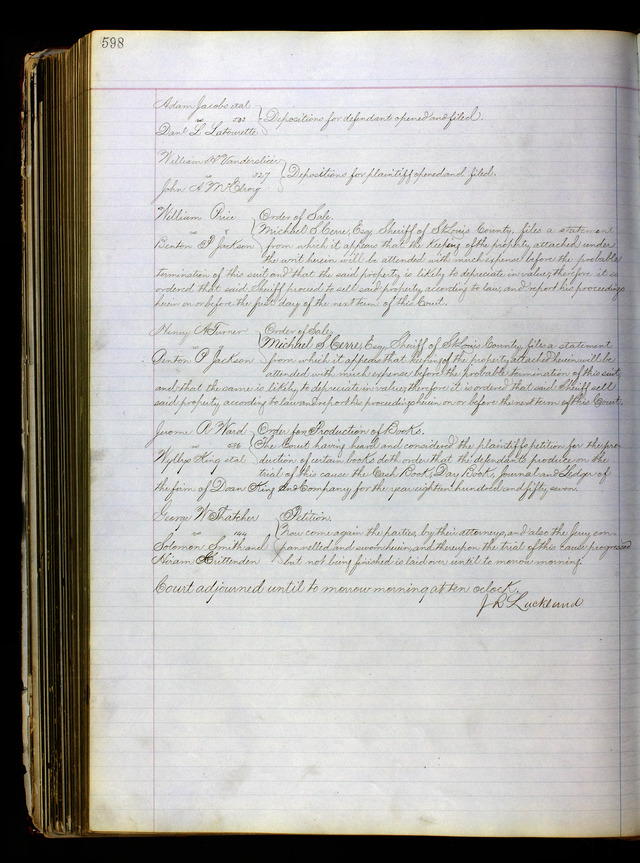 598
Adam Jacobs et al
" Depositions for defendant opened and filed.
Danl L Latourette
William W Vanderslice
" 327 Depositions for plaintiff opened and filed.
John A McElroy
William Price Order of Sale.
" Michael S Cerre, Esq, Sheriff of St Louis County, files a statement
Benton P Jackson from which it appears that the keeping of the property attached under
the writ herein will be attended with much expense before the probable
termination of this suit, and that the said property is likely to depreciate in value, therefore it is
ordered that said Sheriff proceed to sell said property according to law, and report his proceedings
herein on or before the first day of the next term of this Court.
Henry A Turner Order of Sale.
" Michael S Cerre, Esq, Sheriff of St Louis County, files a statement
Benton P Jackson from which it appears that of the property attached herein will be
attended with much expense before the probable termination of this suit,
and that the same is likely to depreciate in value, therefore it is ordered that said Sheriff sell
said property according to law and report his proceedings herein on or before the next term of this Court.
Jerome A Ward Order for Production of Books.
" The Court having heard and considered the plaintiffs petition for the pro-
Wyllys King et al duction of certain books doth order that the defendants produce on the
trial of this cause the Cash Book, Day Book, Journal and Ledger of
the firm of Doan King and Company for the year eighteen hundred and fifty seven.
George W Thatcher Petition.
" 144 Now come again the parties, by their attorneys, and also the Jury em-
Solomon Smith and pannelled and sworn herein, and thereupon the trial of this cause progressed
Hiram Crittenden but not being finished is laid over until to morrow morning.
Court adjourned until to morrow morning at ten oclock.
J R Lackland